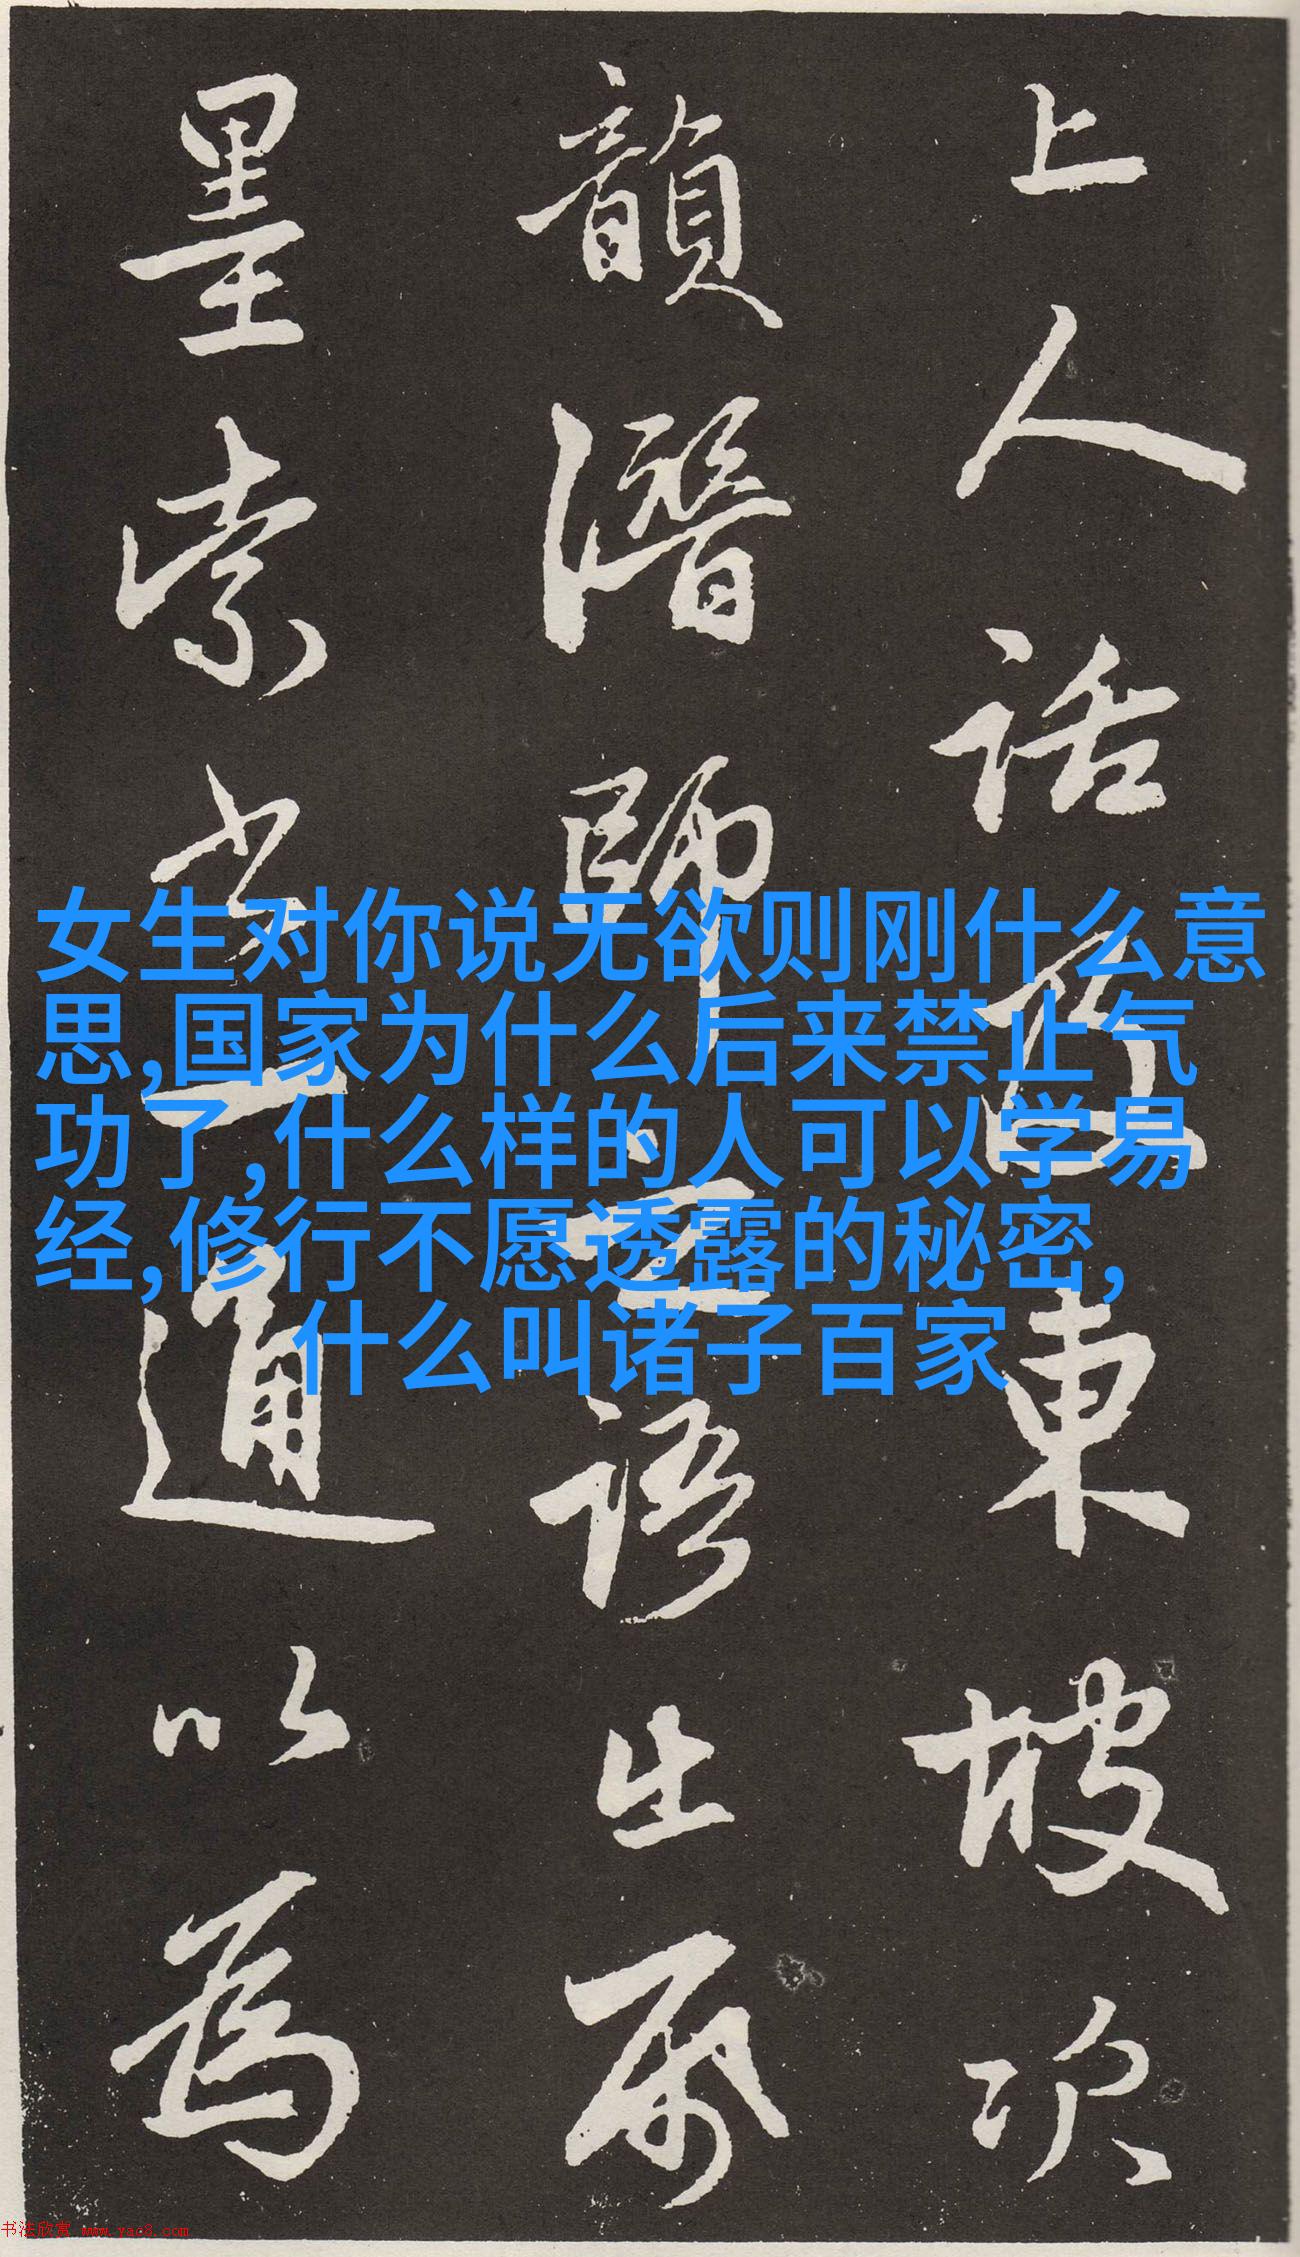 上人話及東坡次
韻潛師
語
生
墨索
通以為
女生对你说无欲则刚什么意
思,国家为什么后来禁止气
功了,什么样的人可以学易
经,修行不愿透露的秘密,
什么叫诸子百家
书法欣赏 www.yac8.com